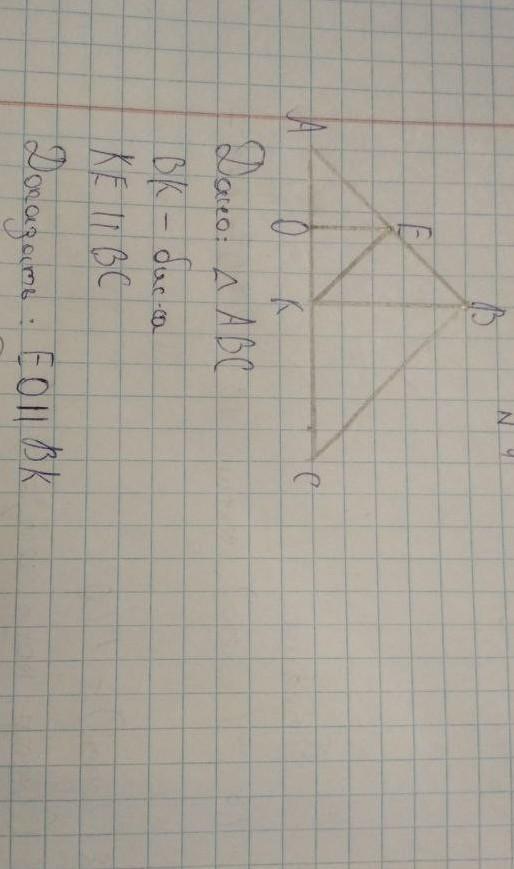 N 4
B
E
A
O
K
C
Дано: Δ ABC
BK – бис-са
KE || BC
Доказать: EO || BK